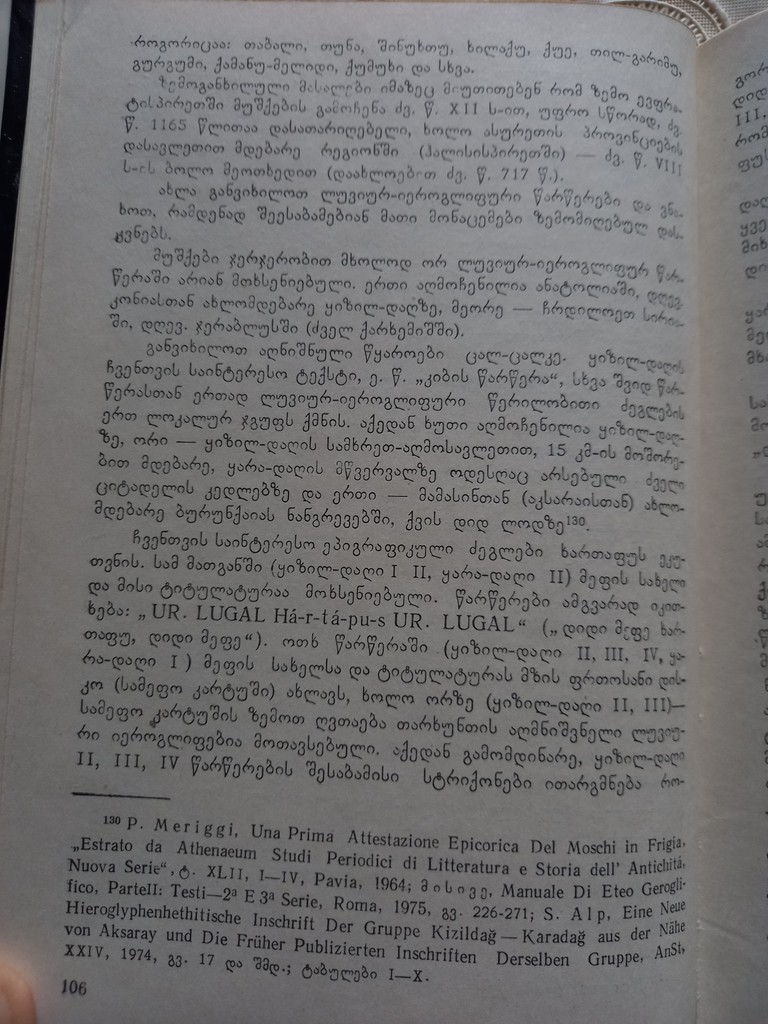 როგორიცაა: თაბალი, თუნა, შინუხთუ, ხილაქუ, ქუე, თილ-გარიმუ,
გურგუმი, ქამანუ-მელიდი, ქუმუხი და სხვა.
ზემოგანხილული მასალები იმაზეც მიუთითებენ რომ ზემო ევფრა-
ტისპირეთში მუშქების გამოჩენა ძვ. წ. XII ს-ით, უფრო სწორად, ძვ.
წ. 1165 წლითაა დასათარიღებელი, ხოლო ასურეთის პროვინციების
დასავლეთით მდებარე რეგიონში (ჰალისისპირეთში) — ძვ. წ. VIII
ს-ის ბოლო მეოთხედით (დაახლოებით ძვ. წ. 717 წ.).
ახლა განვიხილოთ ლუვიურ-იეროგლიფური წარწერები და ვნა-
ხოთ, რამდენად შეესაბამებიან მათი მონაცემები ზემომიღებულ დას-
კვნებს.
მუშქები ჯერჯერობით მხოლოდ ორ ლუვიურ-იეროგლიფურ წარ-
წერაში არიან მოხსენიებული. ერთი აღმოჩენილია ანატოლიაში, დღევ.
კონიასთან ახლომდებარე ყიზილ-დაღზე, მეორე — ჩრდილოეთ სირია-
ში, დღევ. ჯერაბლუსში (ძველ ქარხემიშში).
განვიხილოთ აღნიშნული წყაროები ცალ-ცალკე. ყიზილ-დაღის
ჩვენთვის საინტერესო ტექსტი, ე. წ. „კიბის წარწერა“, სხვა შვიდ წარ-
წერასთან ერთად ლუვიურ-იეროგლიფური წერილობითი ძეგლების
ერთ ლოკალურ ჯგუფს ქმნის. აქედან ხუთი აღმოჩენილია ყიზილ-დაღ-
ზე, ორი — ყიზილ-დაღის სამხრეთ-აღმოსავლეთით, 15 კმ-ის მოშორე-
ბით მდებარე, ყარა-დაღის მწვერვალზე ოდესღაც არსებული ძველი
ციტადელის კედლებზე და ერთი — მამასინთან (აკსარაისთან) ახლო-
მდებარე ბურუნქაიას ნანგრევებში, ქვის დიდ ლოდზე¹³⁰.
ჩვენთვის საინტერესო ეპიგრაფიკული ძეგლები ხართაფუს ეკუ-
თვნის. სამ მათგანში (ყიზილ-დაღი I II, ყარა-დაღი II) მეფის სახელი
და მისი ტიტულატურაა მოხსენიებული. წარწერები ამგვარად იკით-
ხება: „UR. LUGAL Há-r-tá-pu-s UR. LUGAL“ („დიდი მეფე ხარ-
თაფუ, დიდი მეფე“). ოთხ წარწერაში (ყიზილ-დაღი II, III, IV, ყა-
რა-დაღი I) მეფის სახელსა და ტიტულატურას მზის ფრთოსანი დის-
კო (სამეფო კარტუში) ახლავს, ხოლო ორზე (ყიზილ-დაღი II, III)—
სამეფო კარტუშის ზემოთ ღვთაება თარხუნთის აღმნიშვნელი ლუვიუ-
რი იეროგლიფებია მოთავსებული. აქედან გამომდინარე, ყიზილ-დაღი
II, III, IV წარწერების შესაბამისი სტრიქონები ითარგმნება რო-
¹³⁰ P. Meriggi, Una Prima Attestazione Epicorica Del Moschi in Frigia,
„Estrato da Athenaeum Studi Periodici di Litteratura e Storia dell' Antichitá,
Nuova Serie“, ტ. XLII, I—IV, Pavia, 1964; მისივე, Manuale Di Eteo Gerogli-
fico, ParteII: Testi—2ª E 3ª Serie, Roma, 1975, გვ. 226-271; S. Alp, Eine Neue
Hieroglyphenhethitische Inschrift Der Gruppe Kizildağ — Karadağ aus der Nähe
von Aksaray und Die Früher Publizierten Inschriften Derselben Gruppe, AnSt,
XXIV, 1974, გვ. 17 და შმდ.; ტაბულები I—X.
106